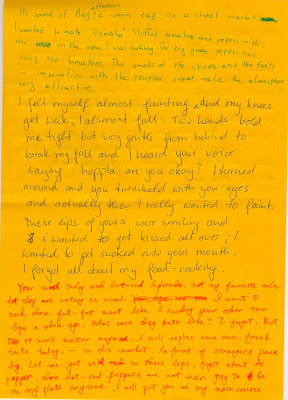 afternoon
Its sound of a warm day on a street market
I wanted to make "yemista" stuffed tomatoes and pepers with
rice in the oven, I was looking for big green pepers and
juicy red tomatoes. The smells of the spices and the fruits
in combination with the peoples sweat made the atmosphere
very attractive.
I felt myself almost fainting and my knees
got weak, I almost fall. Two hands hold
me tight but very gentle from behind to
break my fall and I heard your voice
saying: hoppla are you okay? I turned
around and you twinkeled with you eyes
and actually then I really wanted to faint.
These lips of yours were smiling and
I wanted to get kissed all over, I
wanted to get sucked into your mouth.
I forgot all about my food-cooking.
Your only red-hot lipsticks, not my favorite color
but they are wating as usual. I want to
suck those full-fat your other time
lips a while ago. What were they taste like? I forgot. But
it won't matter anymore. I will explore some new, fresh
taste today. — in this market. In front of strangers pass
by. Let me get in these lips, forget about the
pepper, those hot-red peppers are not even gay to be
on my plate anymore. I will put you as my main course